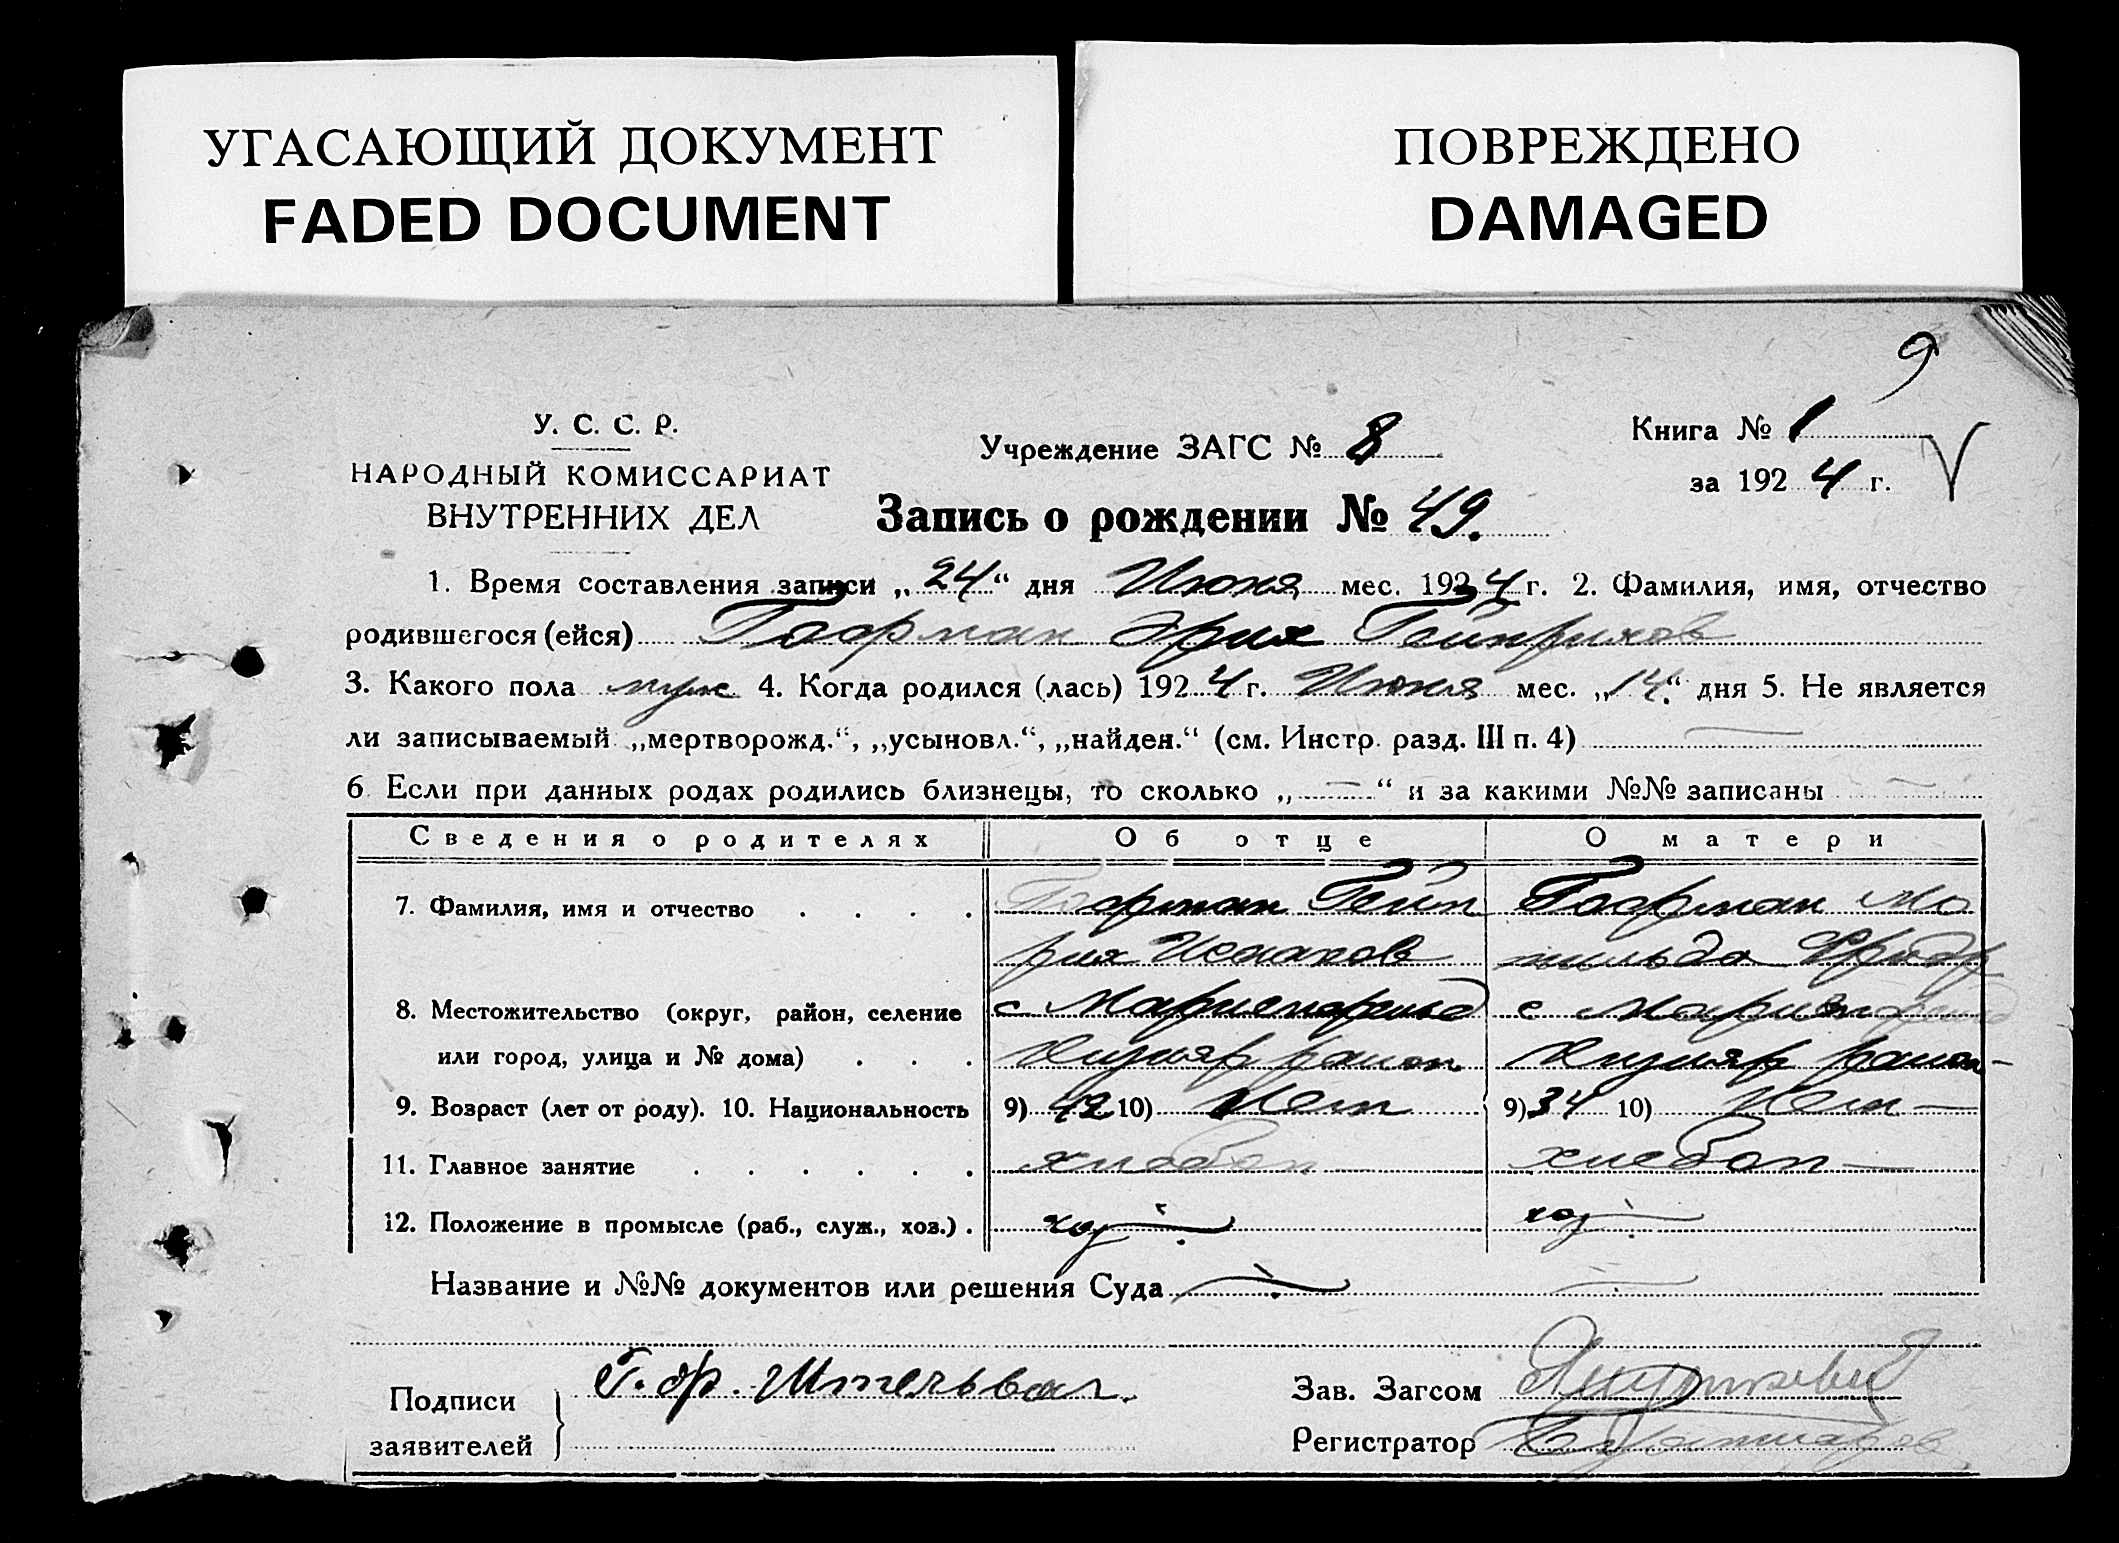 УГАСАЮЩИЙ ДОКУМЕНТ
FADED DOCUMENT
ПОВРЕЖДЕНО
DAMAGED
9
У. С. С. Р.
НАРОДНЫЙ КОМИССАРИАТ
ВНУТРЕННИХ ДЕЛ
Учреждение ЗАГС № 8
Книга № 1
за 1924 г.
Запись о рождении № 49.
1. Время составления записи „24“ дня Июня мес. 1924 г. 2. Фамилия, имя, отчество
родившегося (ейся) Гофман Эрих Гейнрихов
3. Какого пола муж 4. Когда родился (лась) 1924 г. Июня мес. „14.“ дня 5. Не является
ли записываемый „мертворожд.“, „усыновл.“, „найден.“ (см. Инстр. разд. III п. 4) —
6 Если при данных родах родились близнецы, то сколько „—“ и за какими №№ записаны —
Сведения о родителях Об отце О матери
7. Фамилия, имя и отчество . . . . Гофман Гейн Гофман Ма
рих тильда Фридр
8. Местожительство (округ, район, селение с Мариенфельд с Мариенфельд
или город, улица и № дома) . . . район район
9. Возраст (лет от роду). 10. Национальность 9) 42 10) Нем 9) 34 10) Нем —
11. Главное занятие . . . . . . хлебоп — хлебоп —
12. Положение в промысле (раб., служ., хоз.) . хоз хоз
Название и №№ документов или решения Суда
Подписи
заявителей
Г. Штельвах.
Зав. Загсом
Регистратор